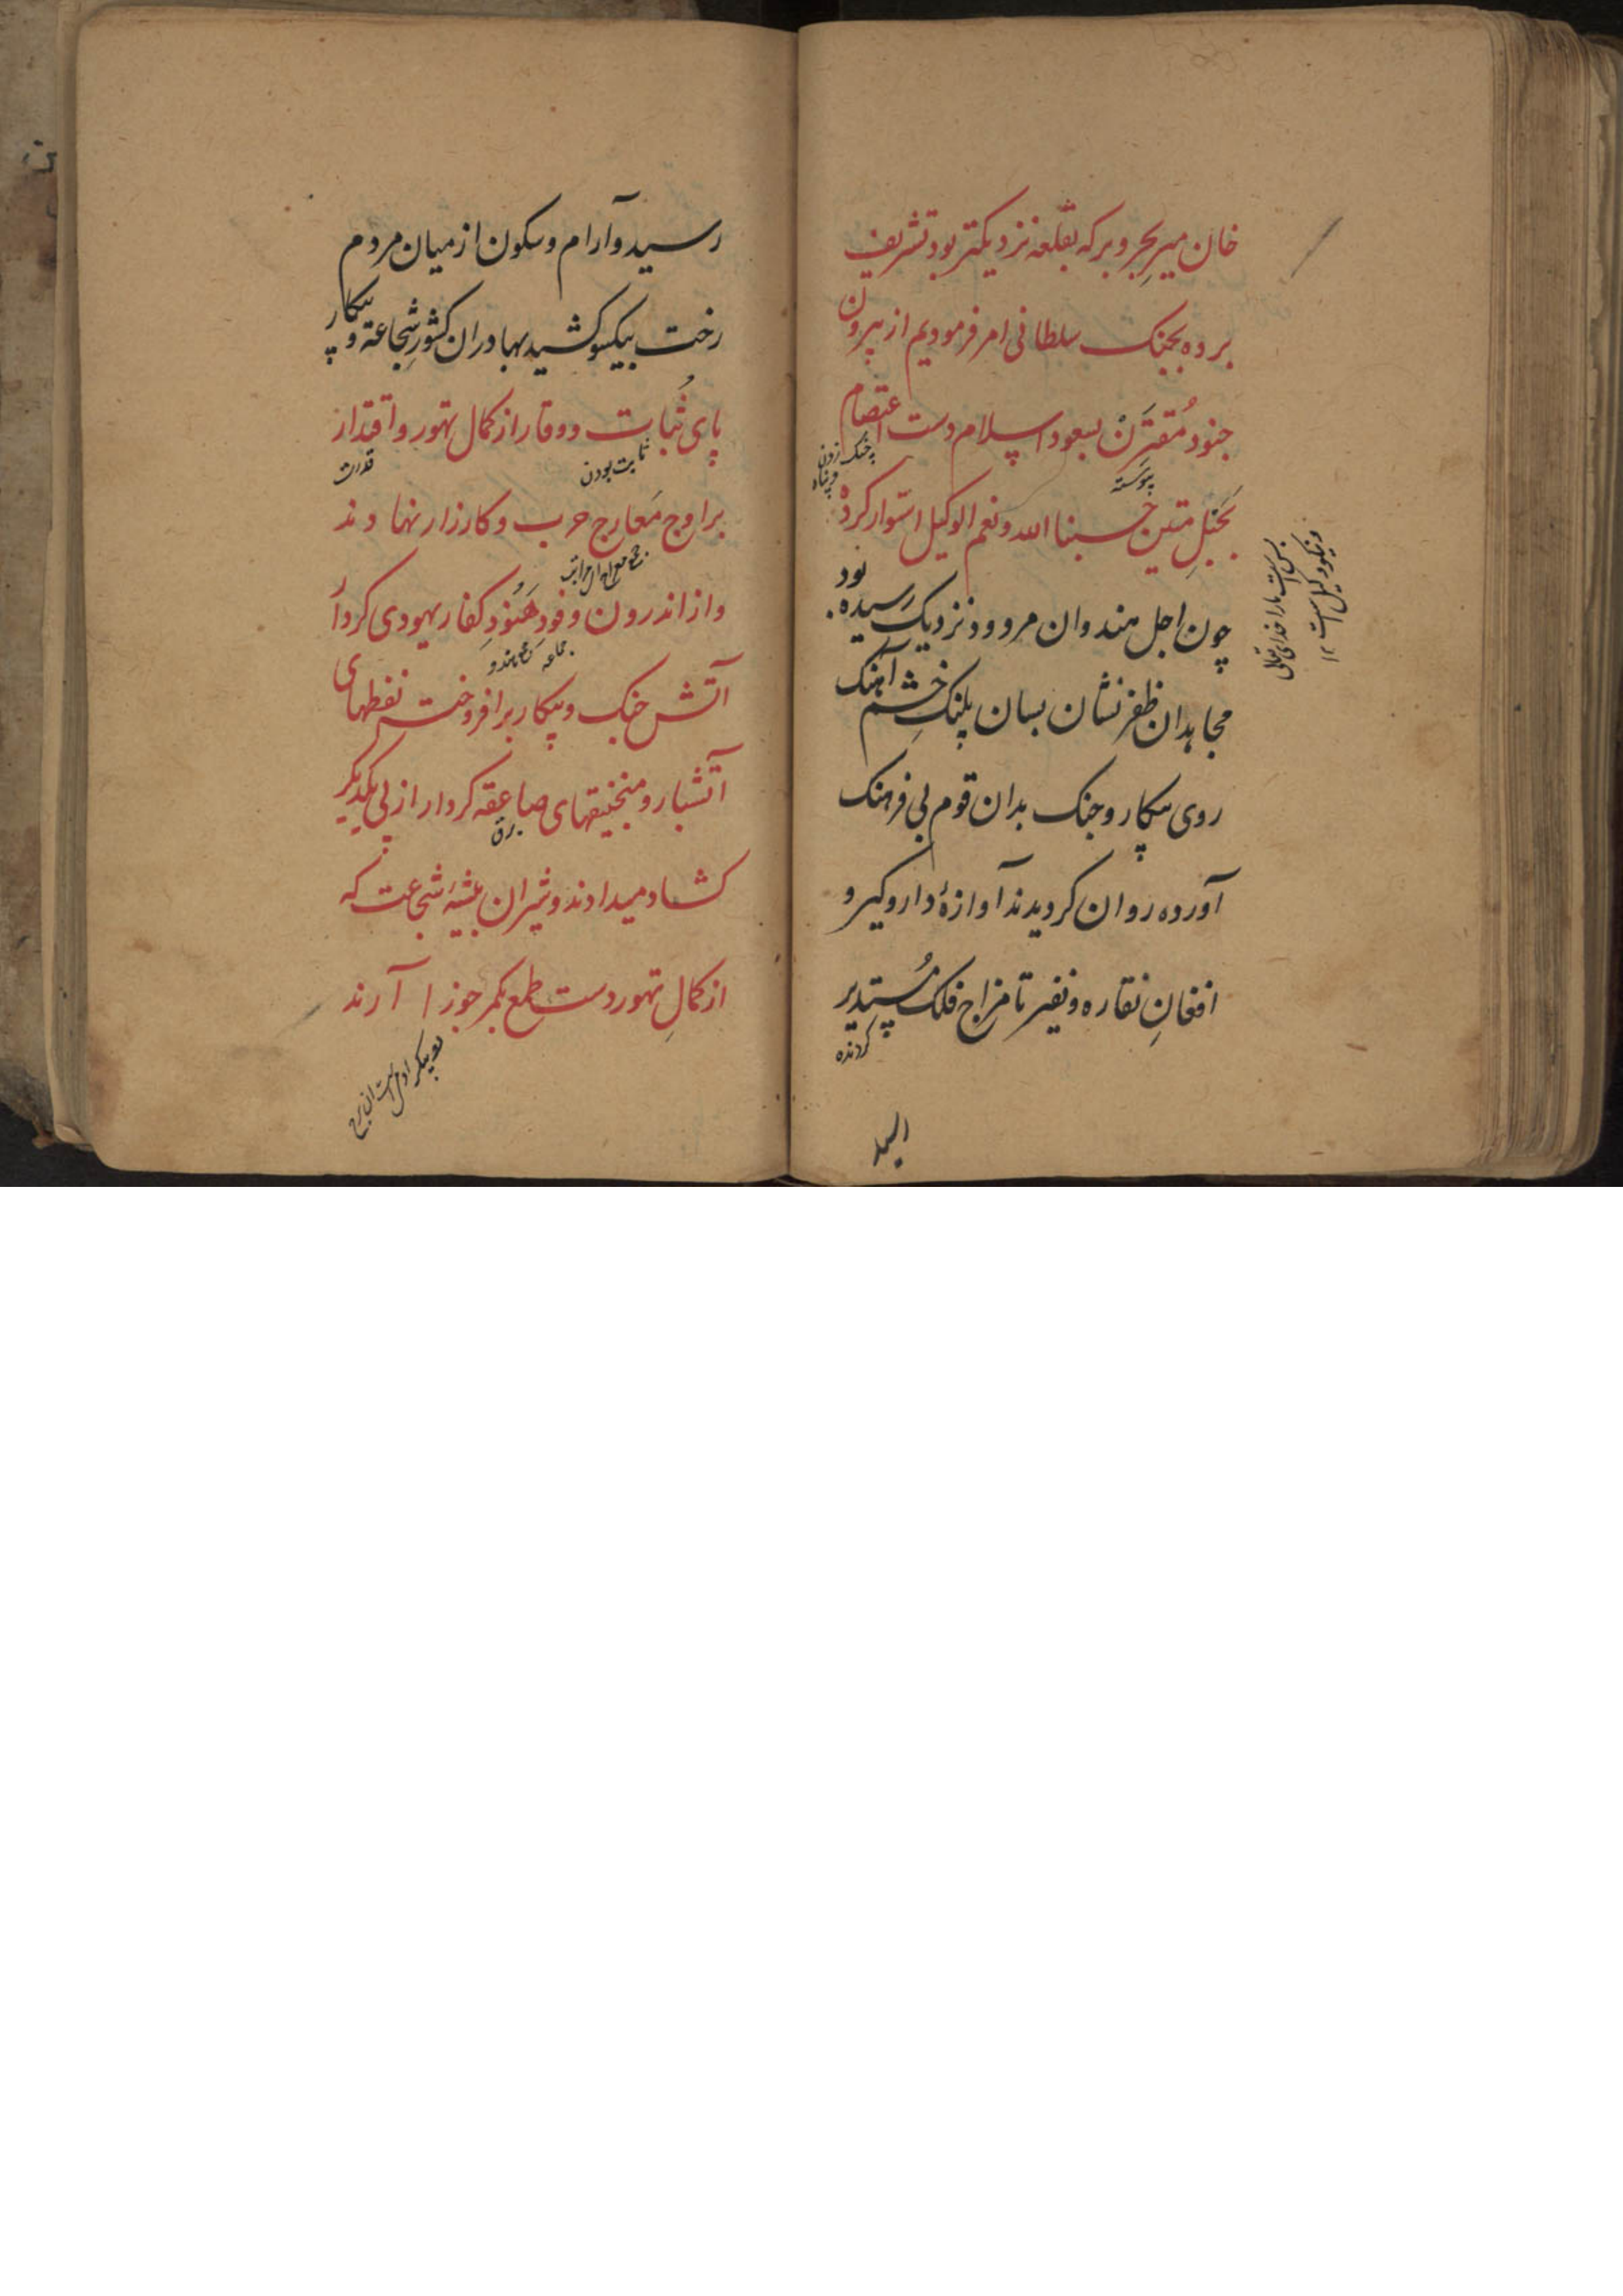 خان میر بحر و بر که بقلعه نزدیکتر بود تشریف
برده بجنک سلطانی امر فرمودیم از بیرون
جنود مُقتَرَنْ بسعود اسلام دست اعتصام
پیوسته
بحَبْلِ متین حسبنا الله و نعم الوکیل استوار کرده
بس است ما را خدای تعالی
و نیکو وکیل است ۱۲
چون اجل هندوان مردود نزدیک رسیده بود
مجاهدان ظفر نشان بسان پلنکِ خشم آهنک
روی پیکار و جنک بدان قوم بی فرهنک
آورده روان کردیدند آوازهٔ دار و کیر و
افغانِ نقاره و نفیر تا مزاج فلک مُستدیر
کردنده
رسید و آرام و سکون از میان مردم
رخت بیکسو کشید بهادران کشورِ شجاعة و پیکار
پای ثُبات و وقار از کمال تهور و اقتدار
ثابت بودن
قدرت
بر اوج مَعارج حرب و کارزار نهادند
و از اندرون وفود هُنُودِ کفار یهودی کردار
جماعه
آتش جنک و پیکار برافروخته نفطهای
آتشبار و منجنیقهای صاعقه کردار از پی یکدیکر
برق
کشاد میدادند و شیران بیشهٔ شجاعت که
از کمالِ تهور دست طمع بکمر جوزا آرند